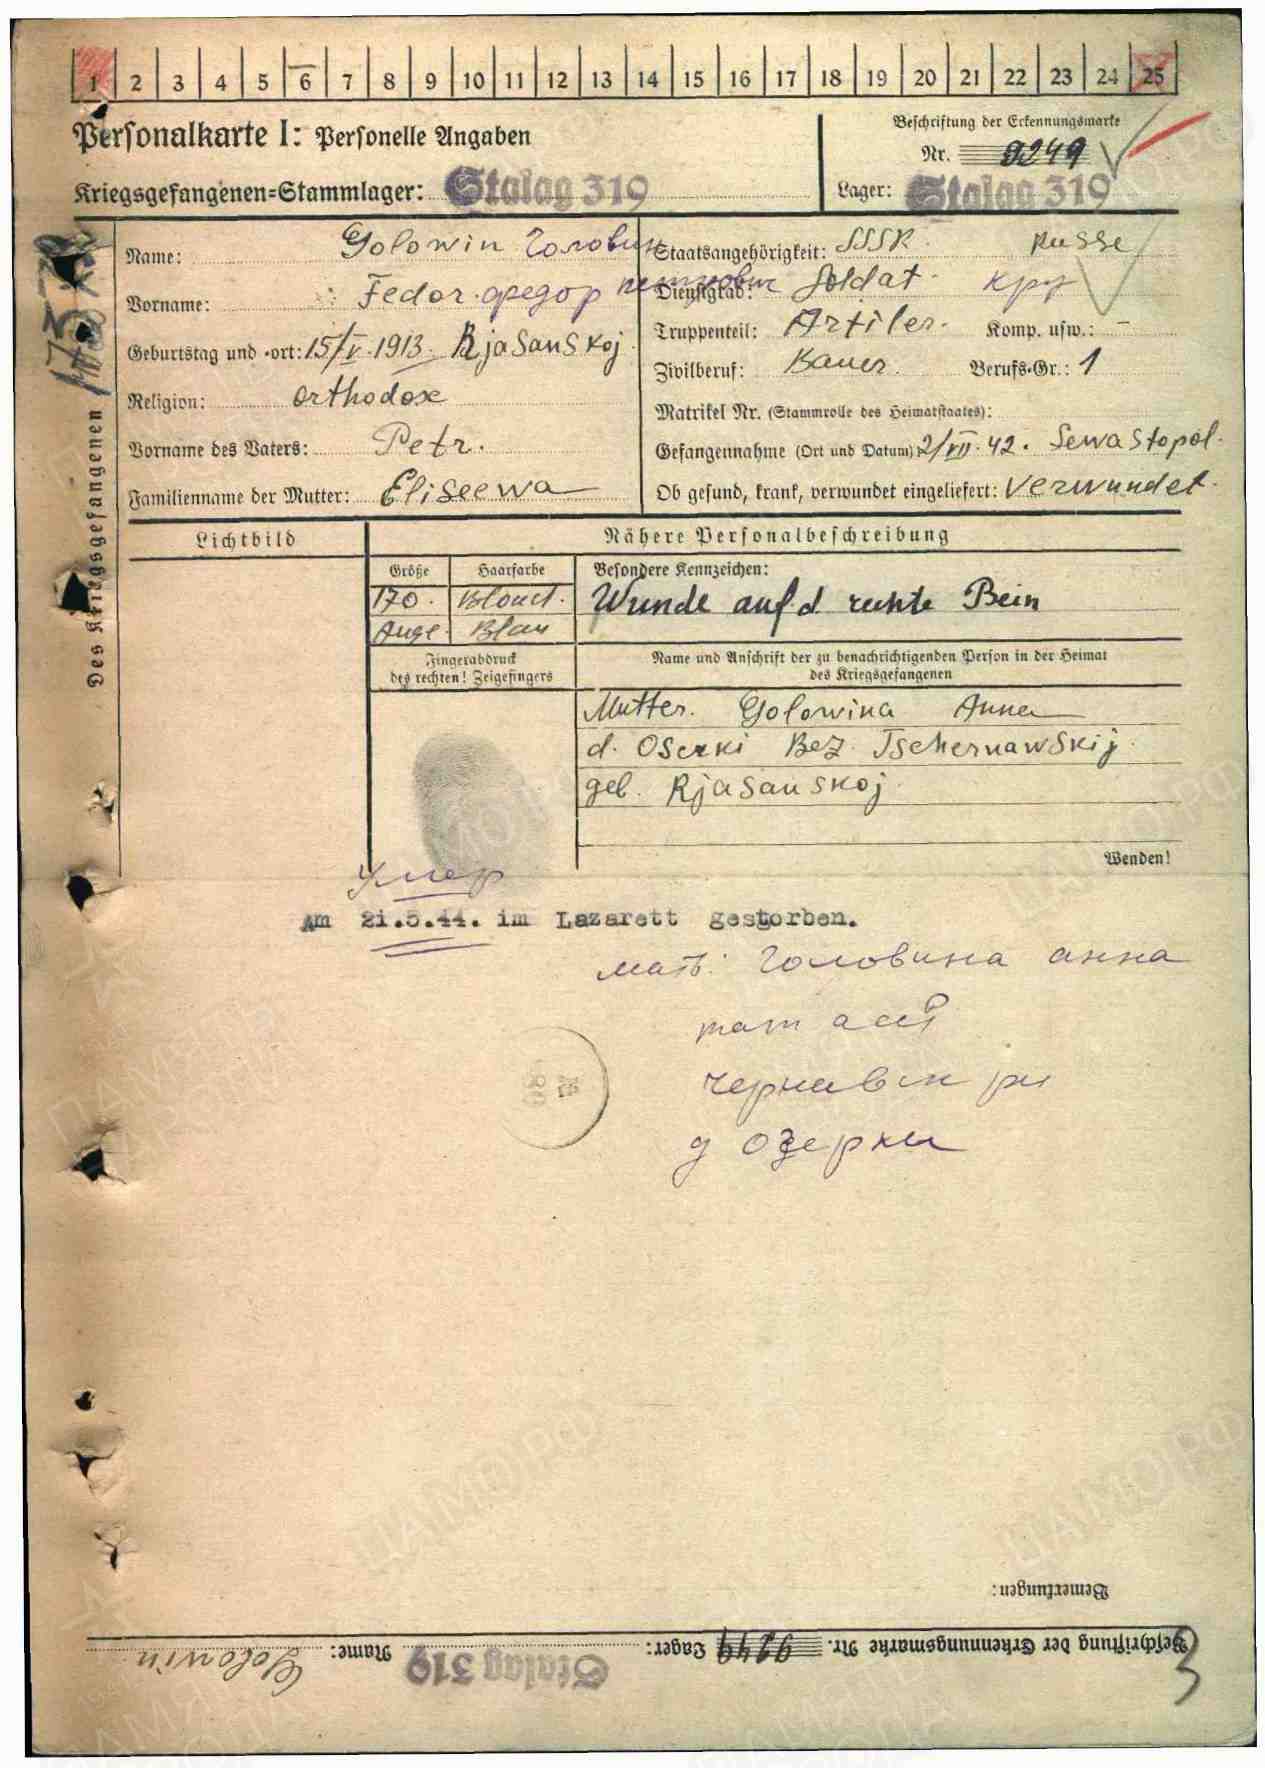 1 2 3 4 5 6 7 8 9 10 11 12 13 14 15 16 17 18 19 20 21 22 23 24 25
Personalkarte I: Personelle Angaben
Kriegsgefangenen-Stammlager: Stalag 319
Beschriftung der Erkennungsmarke
Nr. 9249
Lager: Stalag 319
Des Kriegsgefangenen
Name: Golowin Головин
Vorname: Fedor федор петрович
Geburtstag und -ort: 15/V. 1913. Rjasanskoj
Religion: orthodox
Vorname des Vaters: Petr.
Familienname der Mutter: Eliseewa
Staatsangehörigkeit: SSSR. Russe
Dienstgrad: Soldat кр
Truppenteil: Artiler. Komp. usw.: -
Zivilberuf: Bauer. Berufs-Gr.: 1
Matrikel Nr. (Stammrolle des Heimatstaates):
Gefangennahme (Ort und Datum) 2/VII. 42. Sewastopol.
Ob gesund, krank, verwundet eingeliefert: verwundet.
Lichtbild
Nähere Personalbeschreibung
Größe Haarfarbe Besondere Kennzeichen:
170. Blond. Wunde auf d rechte Bein
Auge. Blau
Fingerabdruck
des rechten! Zeigefingers
Name und Anschrift der zu benachrichtigenden Person in der Heimat
des Kriegsgefangenen
Mutter. Golowina Anna
d. Oserki Bez. Tschernawskij.
geb. Rjasanskoj.
Wenden!
Умер
Am 21.5.44. im Lazarett gestorben.
мать: Головина анна
чернавск рн
д озерки
Bemerkungen:
Beschriftung der Erkennungsmarke Nr. 9249 Lager: Stalag 319 Name: Golowin
3